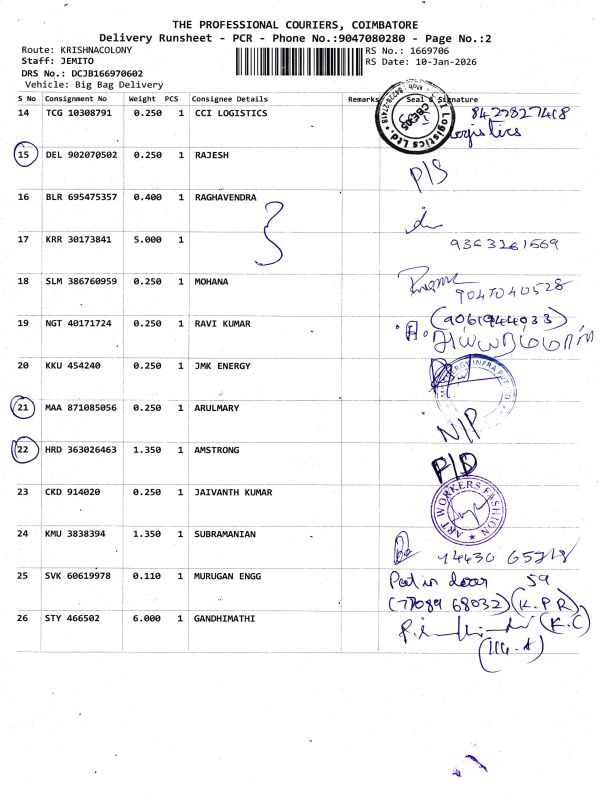 THE PROFESSIONAL COURIERS, COIMBATORE
Delivery Runsheet - PCR - Phone No.:9047080280 - Page No.:2
Route: KRISHNACOLONY RS No.: 1669706
Staff: JEMITO RS Date: 10-Jan-2026
DRS No.: DCJB166970602
Vehicle: Big Bag Delivery
S No Consignment No Weight PCS Consignee Details Remarks Seal & Signature
14 TCG 10308791 0.250 1 CCI LOGISTICS 8422827418
Logistics
15 DEL 902070502 0.250 1 RAJESH P/S
16 BLR 695475357 0.400 1 RAGHAVENDRA
17 KRR 30173841 5.000 1
18 SLM 386760959 0.250 1 MOHANA 9047040528
19 NGT 40171724 0.250 1 RAVI KUMAR (9061944033)
20 KKU 454240 0.250 1 JMK ENERGY
21 MAA 871085056 0.250 1 ARULMARY N/P
22 HRD 363026463 1.350 1 AMSTRONG P/D
23 CKD 914020 0.250 1 JAIVANTH KUMAR ART WORKERS FASHION
24 KMU 3838394 1.350 1 SUBRAMANIAN
25 SVK 60619978 0.110 1 MURUGAN ENGG Put in door 59
(77089 68032) (K.P.R)
26 STY 466502 6.000 1 GANDHIMATHI (K.C)